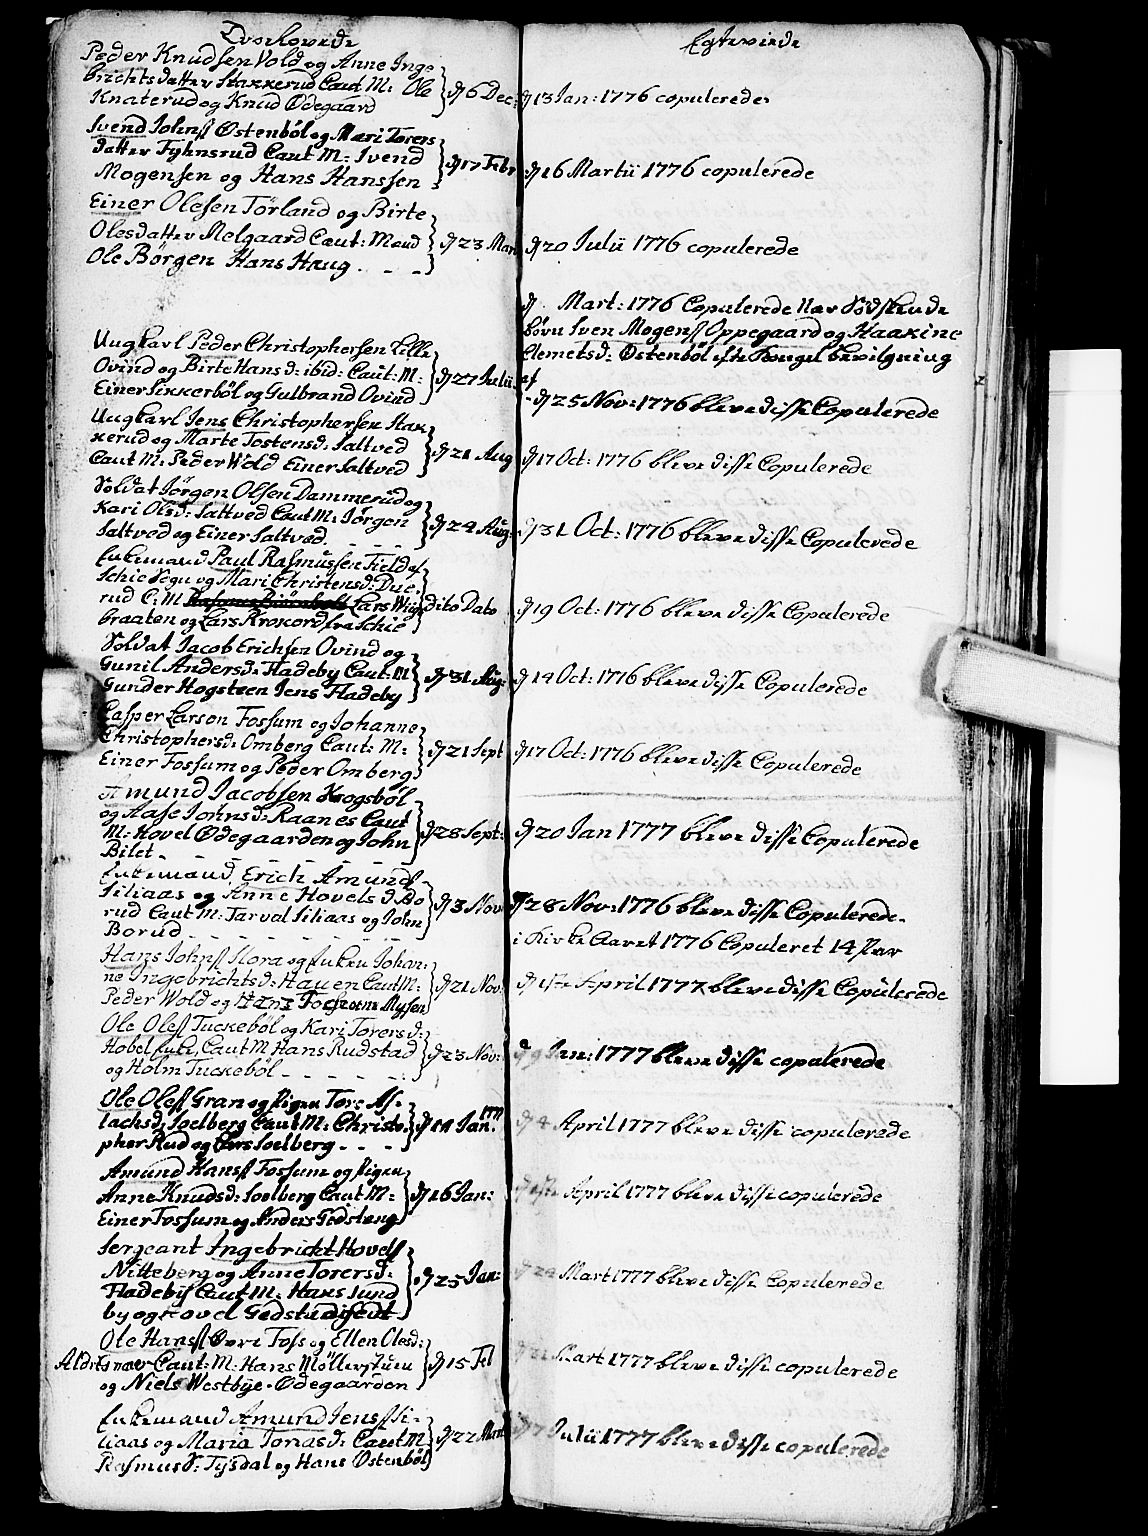 Trolovede
Egteviede
Peder Knudsen Vold og Anne Inge-
brichtsdatter Stakkerud Caut M: Ole
Knaterud og Knud Ødegaard
d 6 Dec:
d 13 Jan: 1776 copulerede
Svend Johns Østenböl og Mari Torers
datter Fyhnsrud Caut M: Svend
Mogensen og Hans Hanssen
d 17 Febr
d 16 Martii 1776 copulerede
Einer Olesen Törland og Birte
Olesdatter Melgaard Caut: Mænd
Ole Börgen Hans Haug
d 23 Mart
d 20 Julii 1776 copulerede
d Mart: 1776 Copulerede Nær Södskende
börn Sven Mogens Oppegaard og Haakine
Clemetsd: Østenböl efter Kongel bevilgning
af
Ungkarl Peder Christophersen Lille
Ovind og Birte Hansd: ibid: Caut: M:
Einer Sikkerböl og Gulbrand Ovind
d 27 Julii
d 25 Nov: 1776 bleve disse Copulerede
Ungkarl Jens Christophersen Stak
kerud og Marte Tostensd: Saltved
Caut M: Peder Wold Einer Saltved
d 21 Aug
d 17 Oct: 1776 bleve disse Copulerede
Soldat Jörgen Olsen Dammerud og
Kari Olsd: Saltved Caut M: Jörgen
Saltved og Einer Saltved
d 24 Aug:
d 31 Oct: 1776 bleve disse Copulerede
Enkemand Paul Rasmussen Field af
Schie Sogn og Mari Christensd: Due-
rud C: M Lars Wiig
braaten og Lars Krokord fra Schie
dito Dato
d 19 Oct: 1776 bleve disse Copulerede
Soldat Jacob Erichsen Ovind og
Gunil Andersd: Fladeby Caut: M
Gunder Hogsteen Jens Fladeby
d 31 Aug:
d 14 Oct: 1776 bleve disse Copulerede
Casper Larsen Fossum og Johanne
Christophersd: Omberg Caut: M:
Einer Fossum og Peder Omberg
d 21 Sept
d 17 Oct: 1776 bleve disse Copulerede
Amund Jacobsen Krogsböl
og Aase Johnsd: Raanes Caut
M: Hovel Ødegaarden og John
Bilet
d 28 Sept:
d 20 Jan 1777 bleve disse Copulerede
Enkemand Erich Amunds
Siliaas og Anne Hovelsd Bo
rud Caut M: Tarval Siliaas og John
Borud
d 3 Nov
d 28 Nov: 1776 bleve disse Copulerede
i Kirke Aaret 1776 Copuleret 14 Par
Hans Johns Mora og Enken Johan:
ne Ingebrichtsd: Hauen Caut M:
Peder Wold og Hans Mysen
d 21 Nov:
d April 1777 bleve disse Copulerede
Ole Oles Tuckeböl og Kari Torersd:
Hobel Enke, Caut M Hans Rudstad
og Holm Tuckeböl
d 23 Nov:
d 9 Jan: 1777 bleve disse copulerede
Ole Oles Gran og Pigen Tore As-
lachsd: Soelberg Caut M: Christo-
pher Rud og Lars Soelberg
d 14 Jan: 1777
d 4 April 1777 bleve disse copulerede
Amund Hans Fossum og Pigen
Anne Knudsd: Soelberg Caut M:
Einer Fossum og Anders Gedstang
d 16 Jan:
April 1777 bleve disse copulerede
Sergeant Ingebricht Hovels
Nitteberg og Anne Torersd:
Fladeby Caut M: Hans Sund
by og Hovel
d 25 Jan:
d 24 Mart 1777 bleve disse Copulerede
Ole Hans Øvre Foss og Ellen Olesd:
Caut: M: Hans Möllerstuen
og Niels Westbÿe-Ødegaarden
d 15 Feb
Mart 1777 bleve disse copulerede
Enkemand Amund Jens Si-
liaas og Maria Jonasd: Caut M
Rasmus S: Tysdal og Hans Østenböl
d 22 Mart
d 7 Julii 1777 bleve disse copulerede